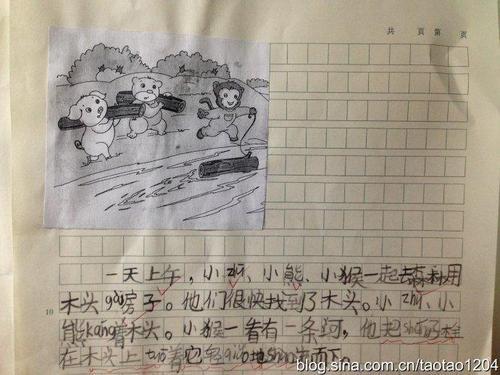 共 页 第 页
一天上午，小zhū、小熊、小猴一起去森林用
10
木头gài房子。他们很快找到了木头。小zhū、小
能káng着木头。小猴一看有一条河，他把shéng
在木头上tuō着它轻qiǎo地shùn而下。
blog.sina.com.cn/taotao1204